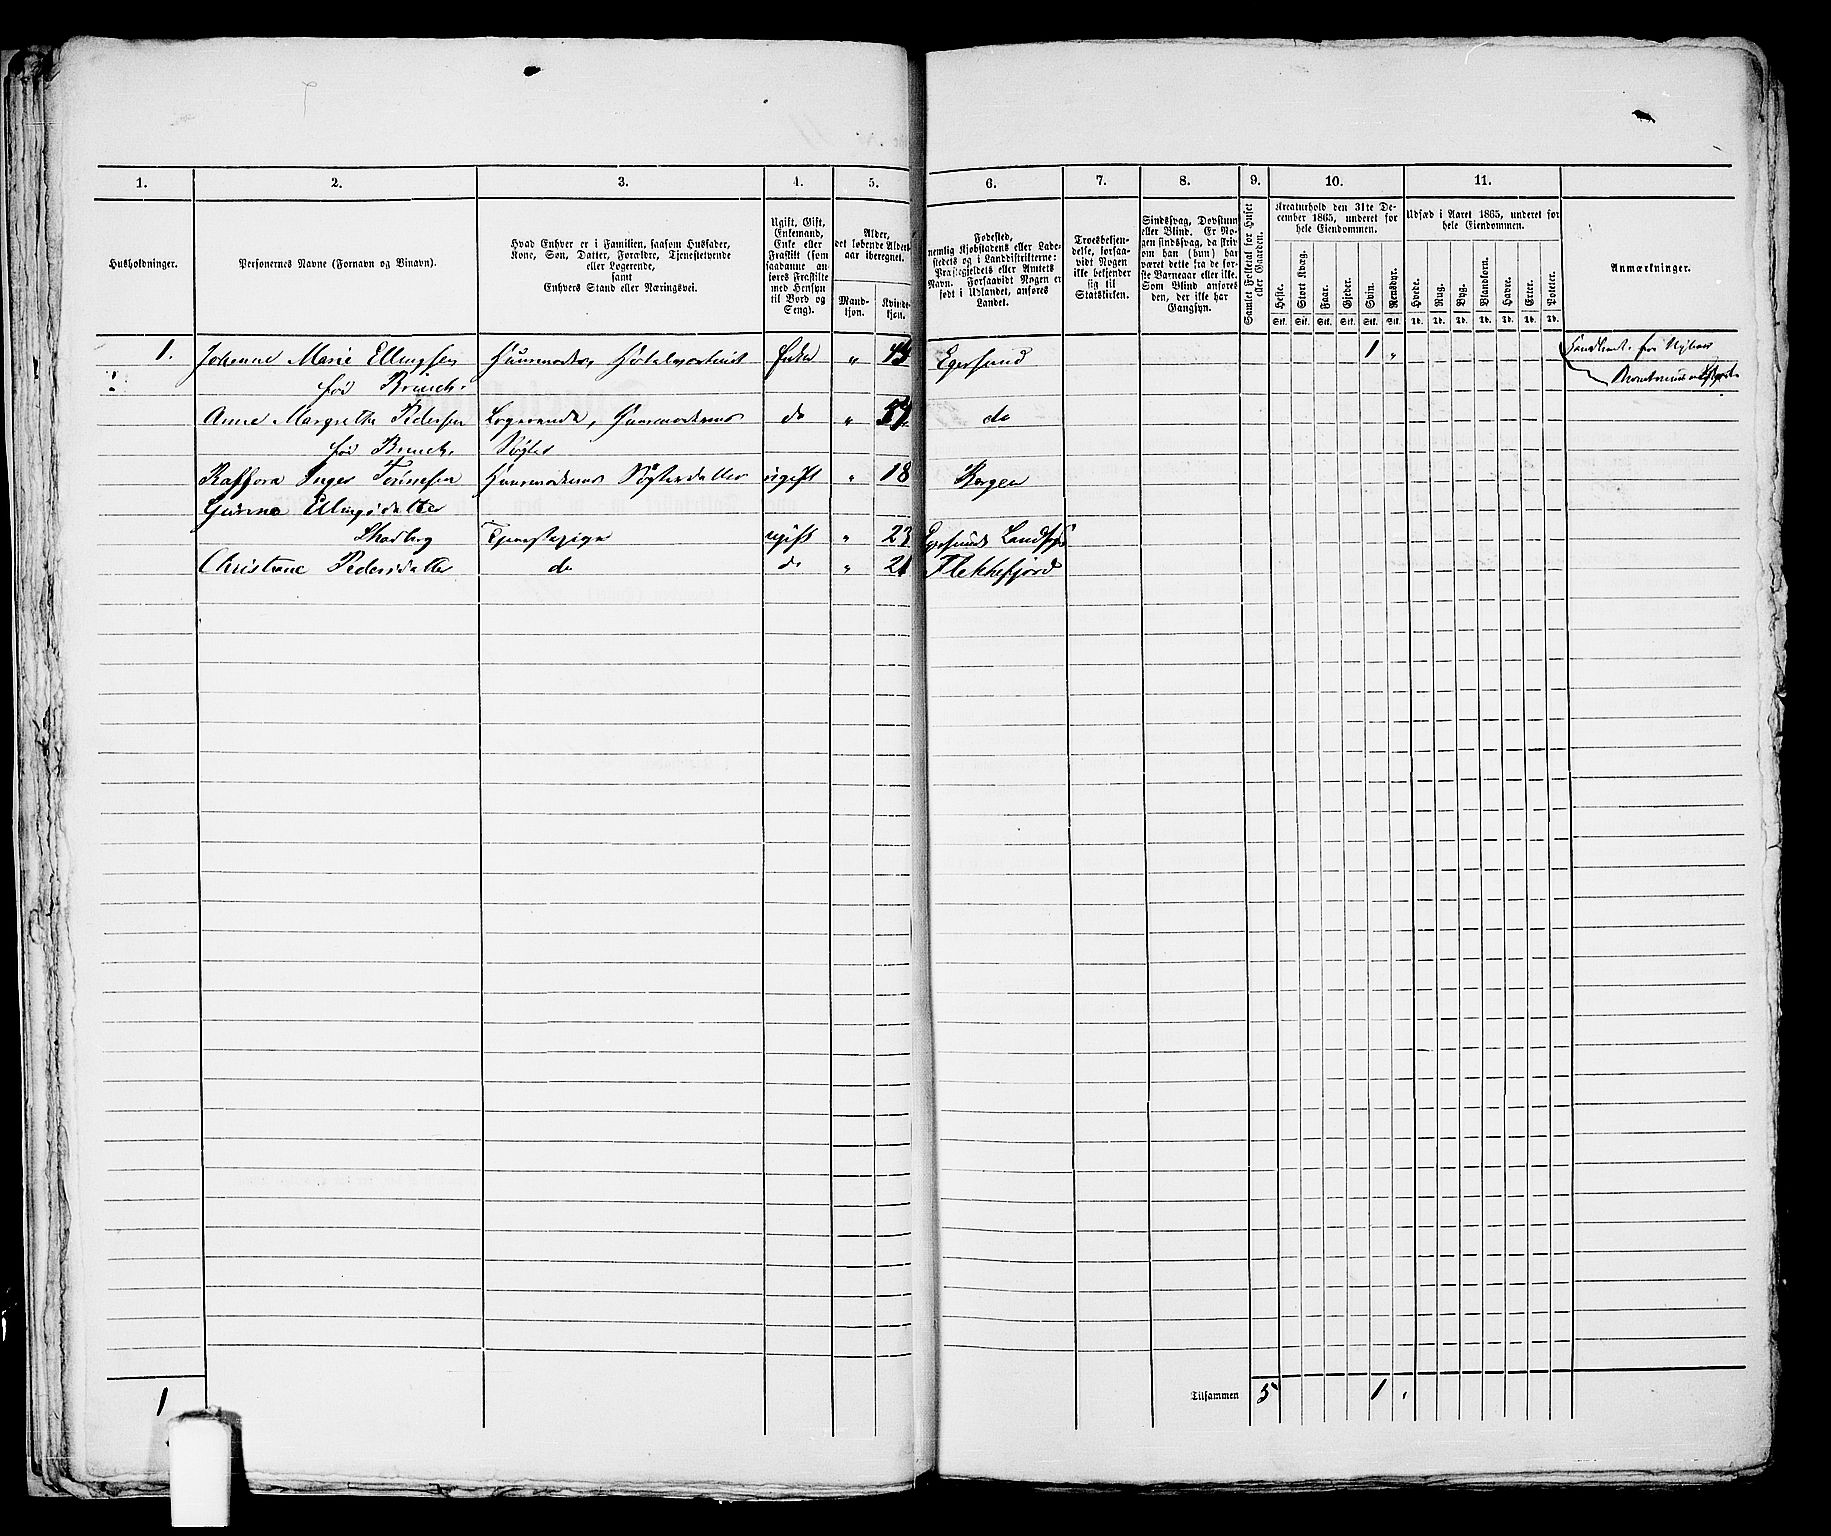 1.
2.
3.
4.
5.
6.
7.
8.
9.
10.
11.
Husholdninger.
Personernes Navne (Fornavn og Binavn).
Hvad Enhver er i Familien, saasom Husfader,
Kone, Søn, Datter, Forældre, Tjenestetyende
eller Logerende,
samt
Enhvers Stand eller Næringsvei.
Ugift, Gift,
Enkemand,
Enke eller
Fraskilt (som
saadanne an-
føres Fraskilte
med Hensyn
til Bord og
Seng).
Alder,
det løbende Alders-
aar iberegnet.
Mand-
kjøn.
Kvinde-
kjøn.
Fødested,
nemlig Kjøbstadens eller Lade-
stedets og i Landdistrikterne:
Præstegjeldets eller Amtets
Navn. Forsaavidt Nogen er
født i Udlandet, anføres
Landet.
Troesbekjen-
delse, forsaa-
vidt Nogen
ikke bekjender
sig til
Statskirken.
Sindssvag, Døvstum
eller Blind. Er No-
gen sindssvag, da skriv
om han (hun) har
været dette fra de før-
ste Barneaar eller ikke.
Som Blind anføres
den, der ikke har
Gangsyn.
Samlet Folketal for Huset
eller Gaarden.
Kreaturhold den 31te De-
cember 1865, underet for
hele Eiendommen.
Heste.
Stort Kvæg.
Faar.
Gjeder.
Svin.
Rensdyr.
Stk. Stk. Stk. Stk. Stk. Stk.
Udsæd i Aaret 1865, underet for
hele Eiendommen.
Hvede.
Rug.
Byg.
Blandkorn.
Havre.
Erter.
Poteter.
Td. Td. Td. Td. Td. Td. Td.
Anmærkninger.
1. Johanne Marie Ellingsen Huusmoder, Enke „ Egersund 1 „
fød Brinch.
Anne Margrethe Pedersen Logerende, Huusmoderens do „ do
fød Brinch. Søster
Inger Tønnesen Huusmoderens Søsterdatter ugift „ 18 Bergen
Ellingsdatter
Tjenestepige ugift „ 23 Egersunds
Christiane Pedersdatter do do „ 21 Flekkefjord
1
Tilsammen 5 1 .